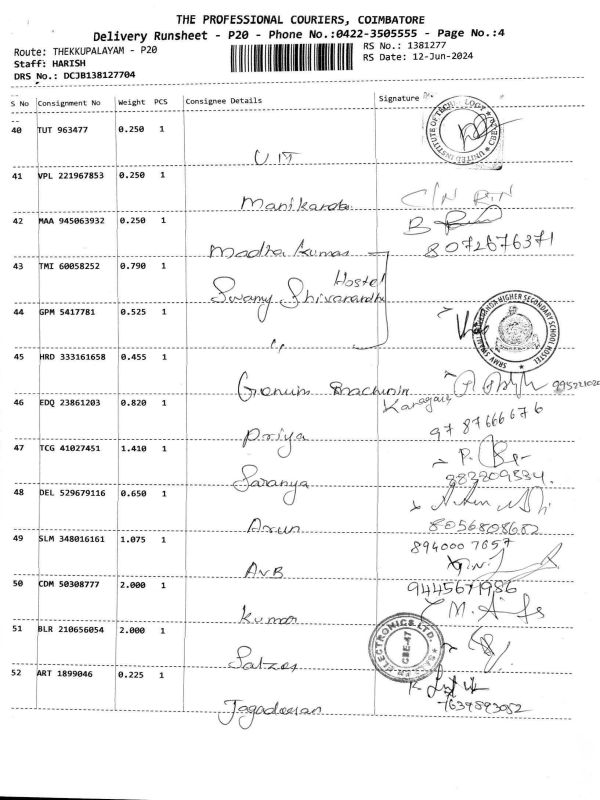 THE PROFESSIONAL COURIERS, COIMBATORE
Delivery Runsheet - P20 - Phone No.:0422-3505555 - Page No.:4
Route: THEKKUPALAYAM - P20
RS No.: 1381277
Staff: HARISH
RS Date: 12-Jun-2024
DRS No.: DCJB138127704
S No Consignment No Weight PCS Consignee Details Signature
40 TUT 963477 0.250 1
UNITED INSTITUTE OF TECHNOLOGY
UIT
41 VPL 221967853 0.250 1
Manikanda C/N RTN
42 MAA 945063932 0.250 1
B
Madhu Kumar 8072676371
43 TMI 60058252 0.790 1
Hostel
Swamy Shivananda
44 GPM 5417781 0.525 1
HIGHER SECONDARY SCHOOL HOSTEL
"
45 HRD 333161658 0.455 1
46 EDQ 23861203 0.820 1
9787666676
Priya
47 TCG 41027451 1.410 1
P.
Saranya
48 DEL 529679116 0.650 1
Arun 8056808682
49 SLM 348016161 1.075 1
8940007657
AVB
50 CDM 50308777 2.000 1
9445671986
Kumar M.
51 BLR 210656054 2.000 1
ELECTRONICS LTD. CBE-47
52 ART 1899046 0.225 1
7639893052
Jagadeesan